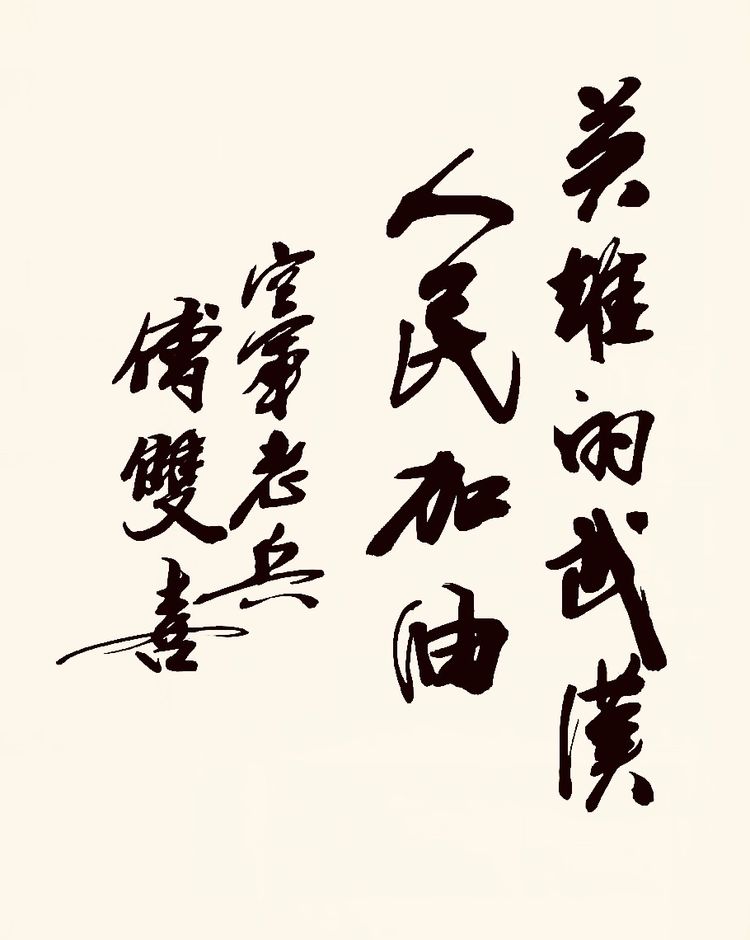 英雄的武漢
人民加油
空軍老兵
傅雙喜